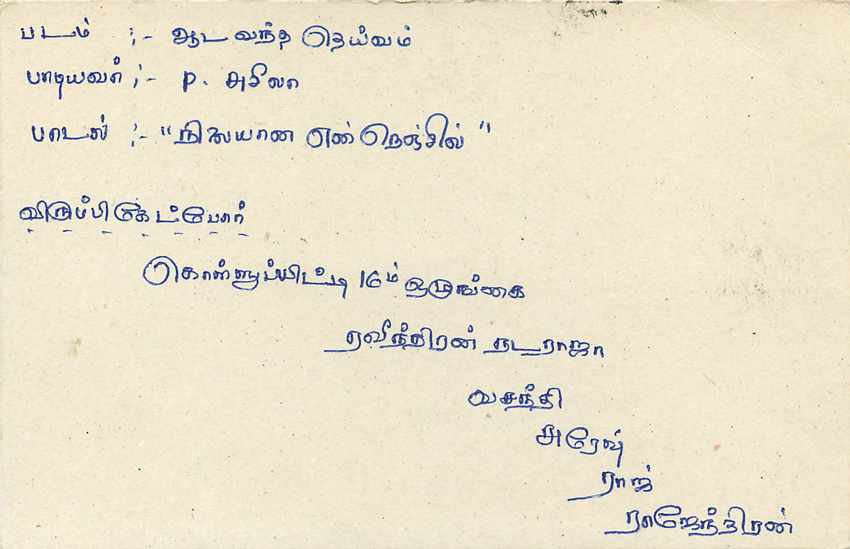 படம் :- ஆடவந்த தெய்வம்
பாடியவர் :- P. சுசீலா
பாடல் :- "நிலையான என்நெஞ்சில்"
விரும்பிகேட்போர்
கொள்ளுப்பிட்டி 16ம் ஒழுங்கை
ரவீந்திரன் நடராஜா
வசந்தி
சுரேஷ்
ராஜ்
ராஜேந்திரன்